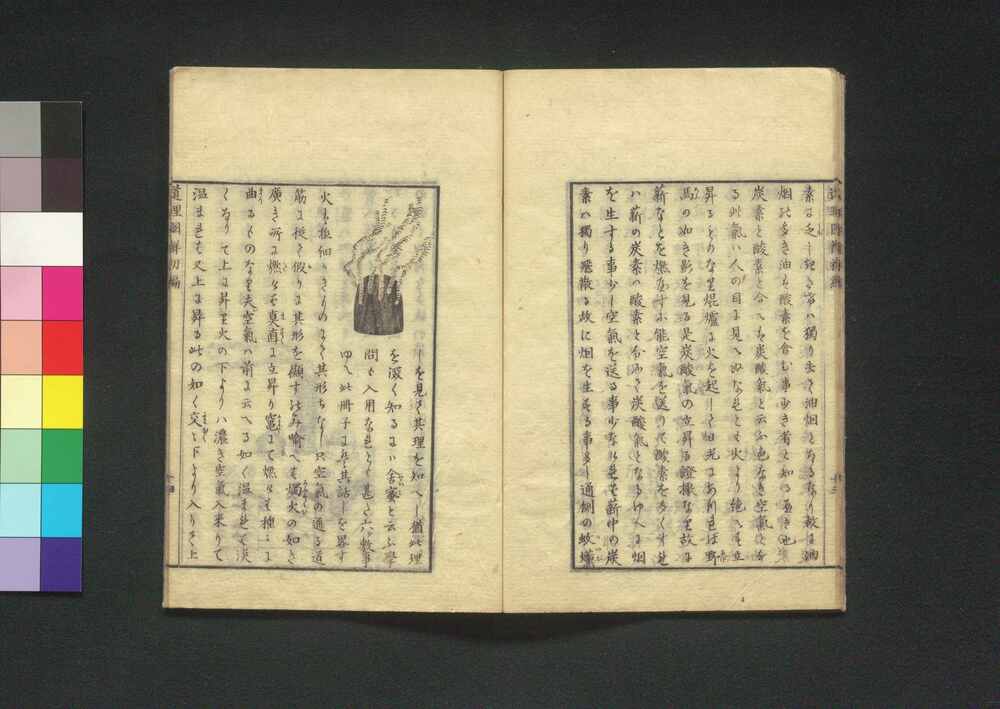 素は乏しき者ハ獨り去て油烟となるなり故に油
烟の多き油は酸素を含む事少き者と知る
炭素と酸素と合へは炭酸氣と云ふ色なき空氣となる
る此氣ハ人の目に見へぬなれとも火より絶へす立
昇るものなり焜爐に火を起して日光にあつれは野
馬の如き影を見る是炭酸氣の立昇る證據なり故に
薪なとを燃すに能空氣を送りて酸素を多くすれ
ハ薪の炭素ハ酸素と合ふて炭酸氣となるゆへに烟
を生する事少し空氣を送る事少なけれは薪中の炭
素ハ獨り飛散る故に烟を生する事多し通例の蚊燻
道理圖解初編
しを見て其理を知へし猶此理
を深く知るにハ舎密と云ふ學
問も入用なれとも甚た六ケ敷事
ゆへ此冊子にハ其話しを畧す
火は極細かきものにて其形ちなし只空氣の通る道
筋に從て假りに其形を顯すのみ喩へは燭火の如き
廣き所に燃れは真直に立昇り竈にて燃れは種々に
曲るものなり夫空氣ハ前に云へる如く温まれは淡
くなりて上に昇り火の下よりハ濃き空氣入来りて
温まれは又上に昇る此の如く交々下より入りて上